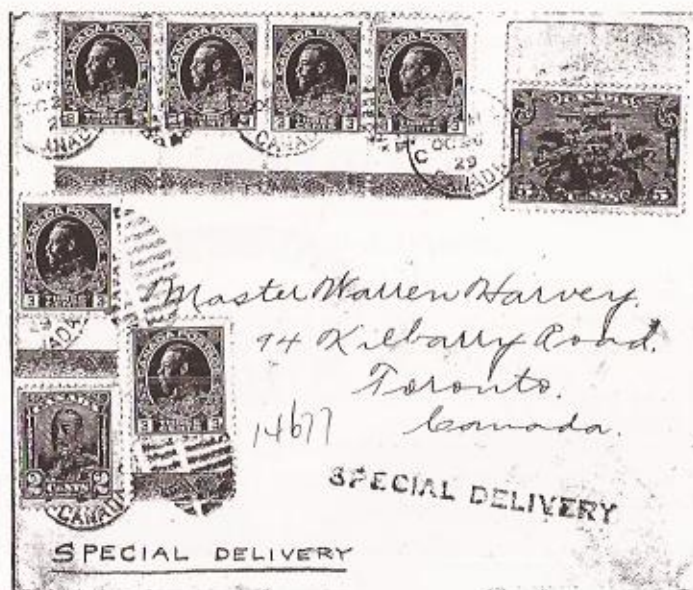 CANADA POSTAGE CANADA POSTAGE CANADA POSTAGE CANADA POSTAGE
3 3 3 3 3 3 3
CANADA
OC 26
29
CANADA
5 CENTS 5
CANADA POSTAGE
3 3
29
CANADA POSTAGE
3 3
CANADA
2 CENTS 2
CANADA
Master Warren Harvey.
94 Kilbarry Road.
Toronto.
Canada.
14677
SPECIAL DELIVERY
SPECIAL DELIVERY